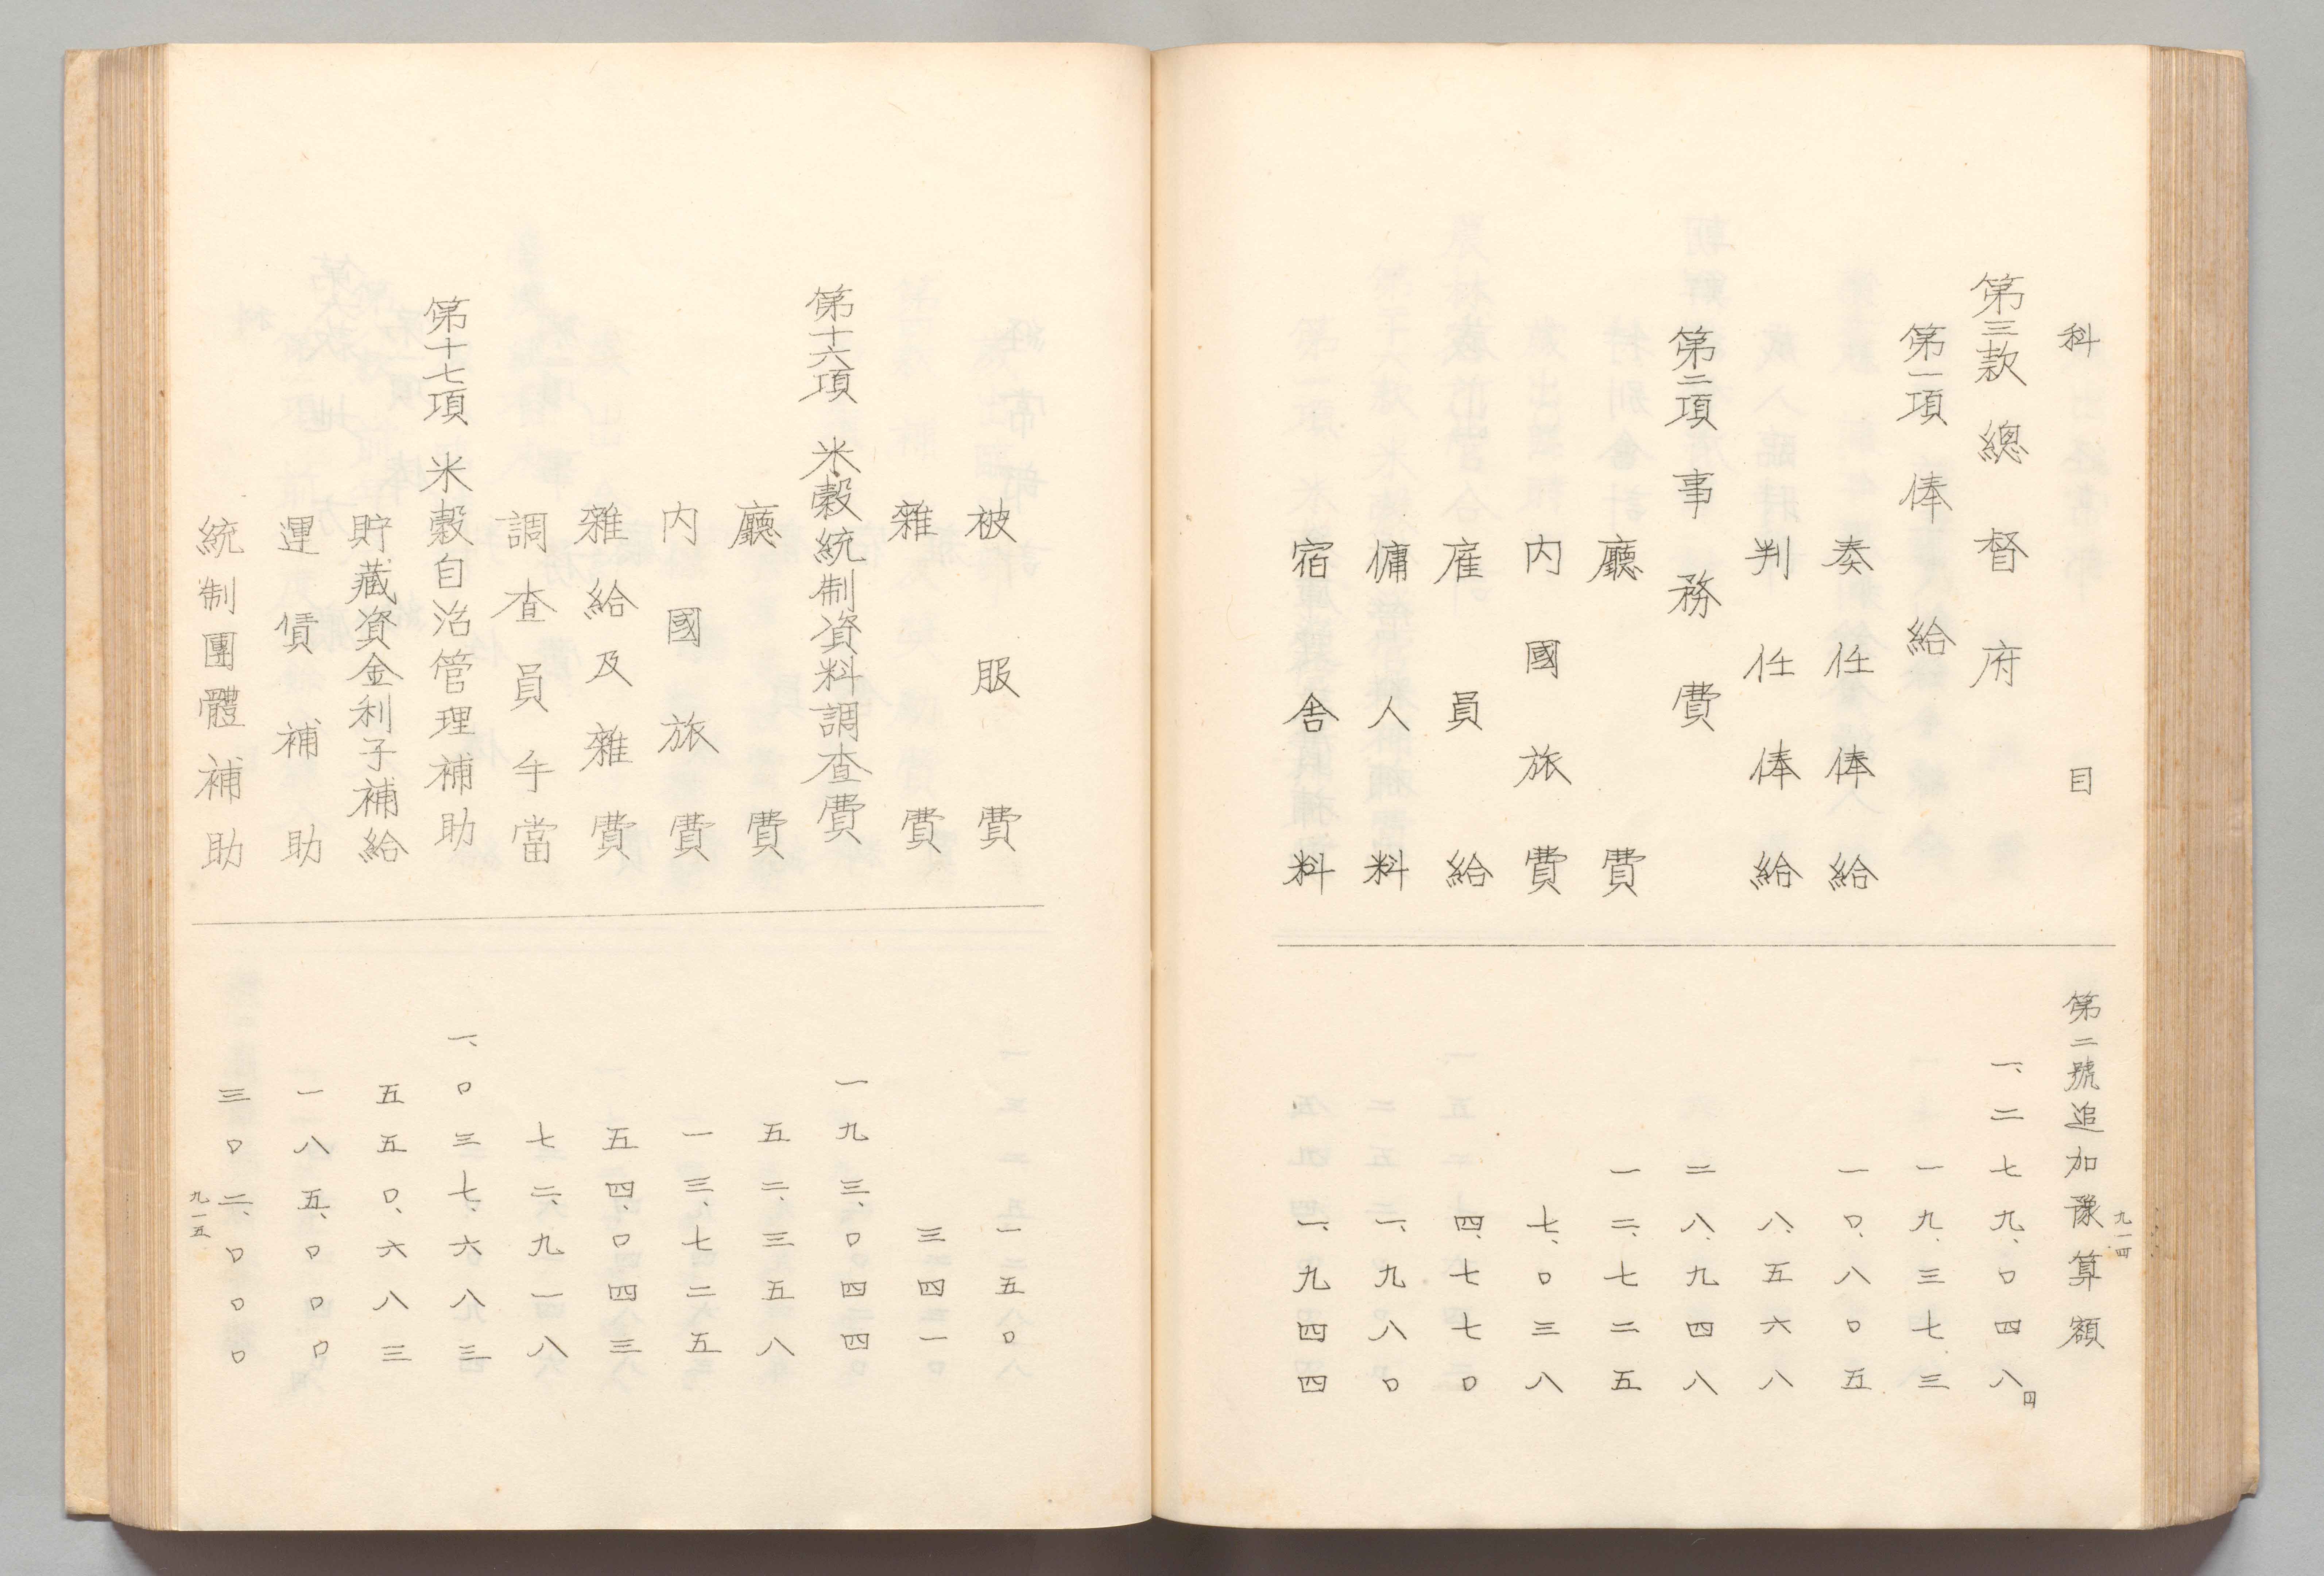 九一四
科目 第二號追加豫算額
第三款 總督府 一、二七九、〇四八円
第一項 俸給 一九、三七三
奏任俸給 一〇、八〇五
判任俸給 八、五六八
第二項 事務費 二八、九四八
廳費 一二、七二五
內國旅費 七、〇三八
雇員給 四、七七〇
傭人料 一、九八〇
宿舍料 一、九四四
被服費 一五〇
雜費 三四一
第十六項 米穀統制資料調査費 一九三、〇四四
廳費 五二、三五八
內國旅費 一三、七二五
雜給及雜費 五四、〇四三
調査員手當 七二、九一八
第十七項 米穀自治管理補助 一、〇三七、六八三
貯藏資金利子補給 五五〇、六八三
運賃補助 一八五、〇〇〇
統制團體補助 三〇二、〇〇〇
九一五